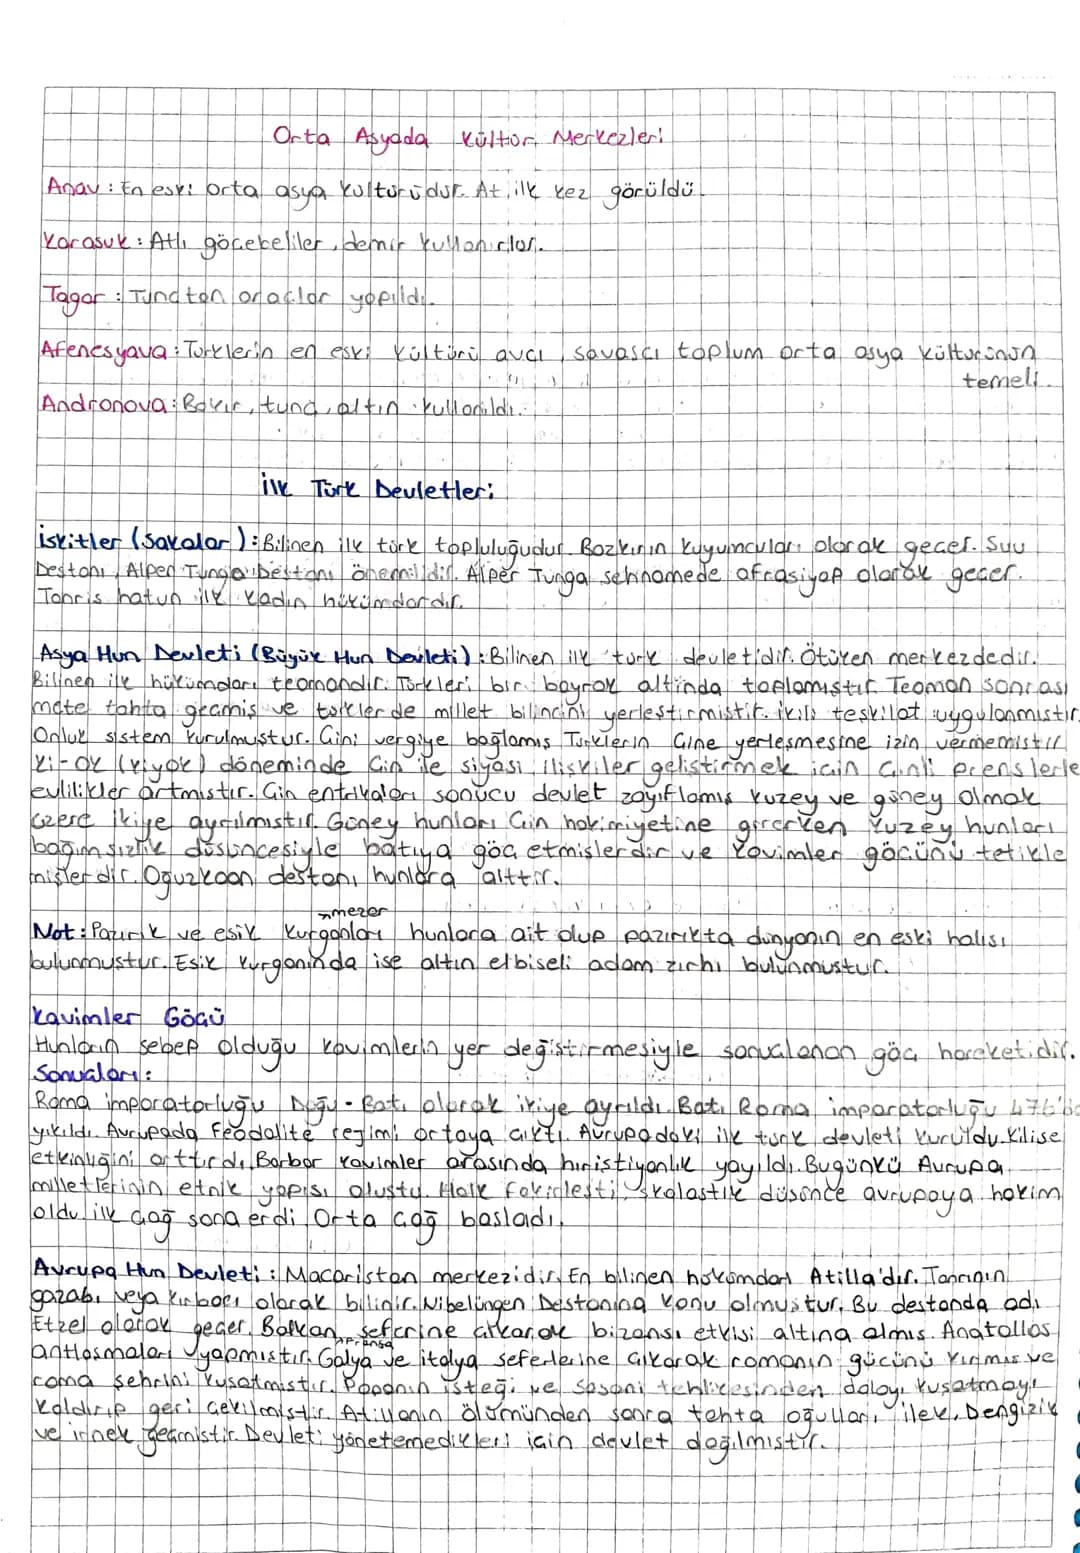 Orta Asyada Kültür Merkezleri
Anav : En eski orta asya kültürüdür. At ilk kez görüldü.
Karasuk : Atlı göçebeliler, demir kullanırlar.
Tagar : Tunçtan araçlar yapıldı.
Afenesyava : Türklerin en eski kültürü avcı, savaşçı toplum orta asya kültürünün
temeli.
Andronova : Bakır, tunç, altın kullanıldı.
İlk Türk Devletleri
İskitler (Sakalar) : Bilinen ilk türk topluluğudur. Bozkırın kuyumcuları olarak geçer. Şuu
Destanı, Alper Tunga Destanı önemlidir. Alper Tunga şehnamede afrasiyap olarak geçer.
Tomris hatun ilk kadın hükümdardır.
Asya Hun Devleti (Büyük Hun Devleti) : Bilinen ilk türk devletidir. Ötüken merkezdedir.
Bilinen ilk hükümdarı teomandır. Türkleri bir bayrak altında toplamıştır. Teoman sonrası
mete tahta geçmiş ve türklerde millet bilincini yerleştirmiştir. ikili teşkilat uygulanmıştır.
Onluk sistem kurulmuştur. Çini vergiye bağlamış Türklerin Çine yerleşmesine izin vermemiştir
Ki-ok (kiyok) döneminde Çin ile siyasi ilişkiler geliştirmek için çinli prenslerle
evlilikler artmıştır. Çin entrikaları sonucu devlet zayıflamış kuzey ve güney olmak
üzere ikiye ayrılmıştır. Güney hunları Çin hakimiyetine girerken kuzey hunları
bağımsızlık düşüncesiyle batıya göç etmişlerdir ve kavimler göçünü tetikle
mişlerdir. Oğuzkaan destanı hunlara aittir.
→mezar
Not : Pazırık ve esik kurganları hunlara ait olup pazırıkta dünyanın en eski halısı
bulunmuştur. Esik kurganında ise altın elbiseli adam zırhı bulunmuştur.
Kavimler Göçü
Hunların sebep olduğu kavimlerin yer değiştirmesiyle sonuçlanan göç hareketidir.
Sonuçları :
Roma imparatorluğu Doğu - Batı olarak ikiye ayrıldı. Batı Roma imparatorluğu 476'da
yıkıldı. Avrupada feodalite rejimi ortaya çıktı. Avrupadaki ilk türk devleti kuruldu. Kilise
etkinliğini arttırdı, Barbar kavimler arasında hıristiyanlık yayıldı. Bugünkü Avrupa
milletlerinin etnik yapısı oluştu. Halk fakirleşti, skolastik düşünce avrupaya hakim
oldu. ilk çağ sona erdi Orta çağ başladı.
Avrupa Hun Devleti : Macaristan merkezidir. En bilinen hükümdarı Atilla'dır. Tanrının
gazabı veya kırbacı olarak bilinir. Nibelüngen Destanına konu olmuştur. Bu destanda adı
Etzel olarak geçer. Balkan seferine çıkarak bizansı etkisi altına almış. Anatollos
→Fransa
antlaşmaları yapmıştır. Galya ve italya seferlerine çıkarak romanın gücünü kırmış ve
roma şehrini kuşatmıştır. Papanın isteği ve sasani tehlikesinden dolayı kuşatmayı
kaldırıp geri çekilmiştir. Atillanın ölümünden sonra tahta oğulları, ilek, Dengizik
ve irnek geçmiştir. Devleti yönetemedikleri için devlet dağılmıştır.